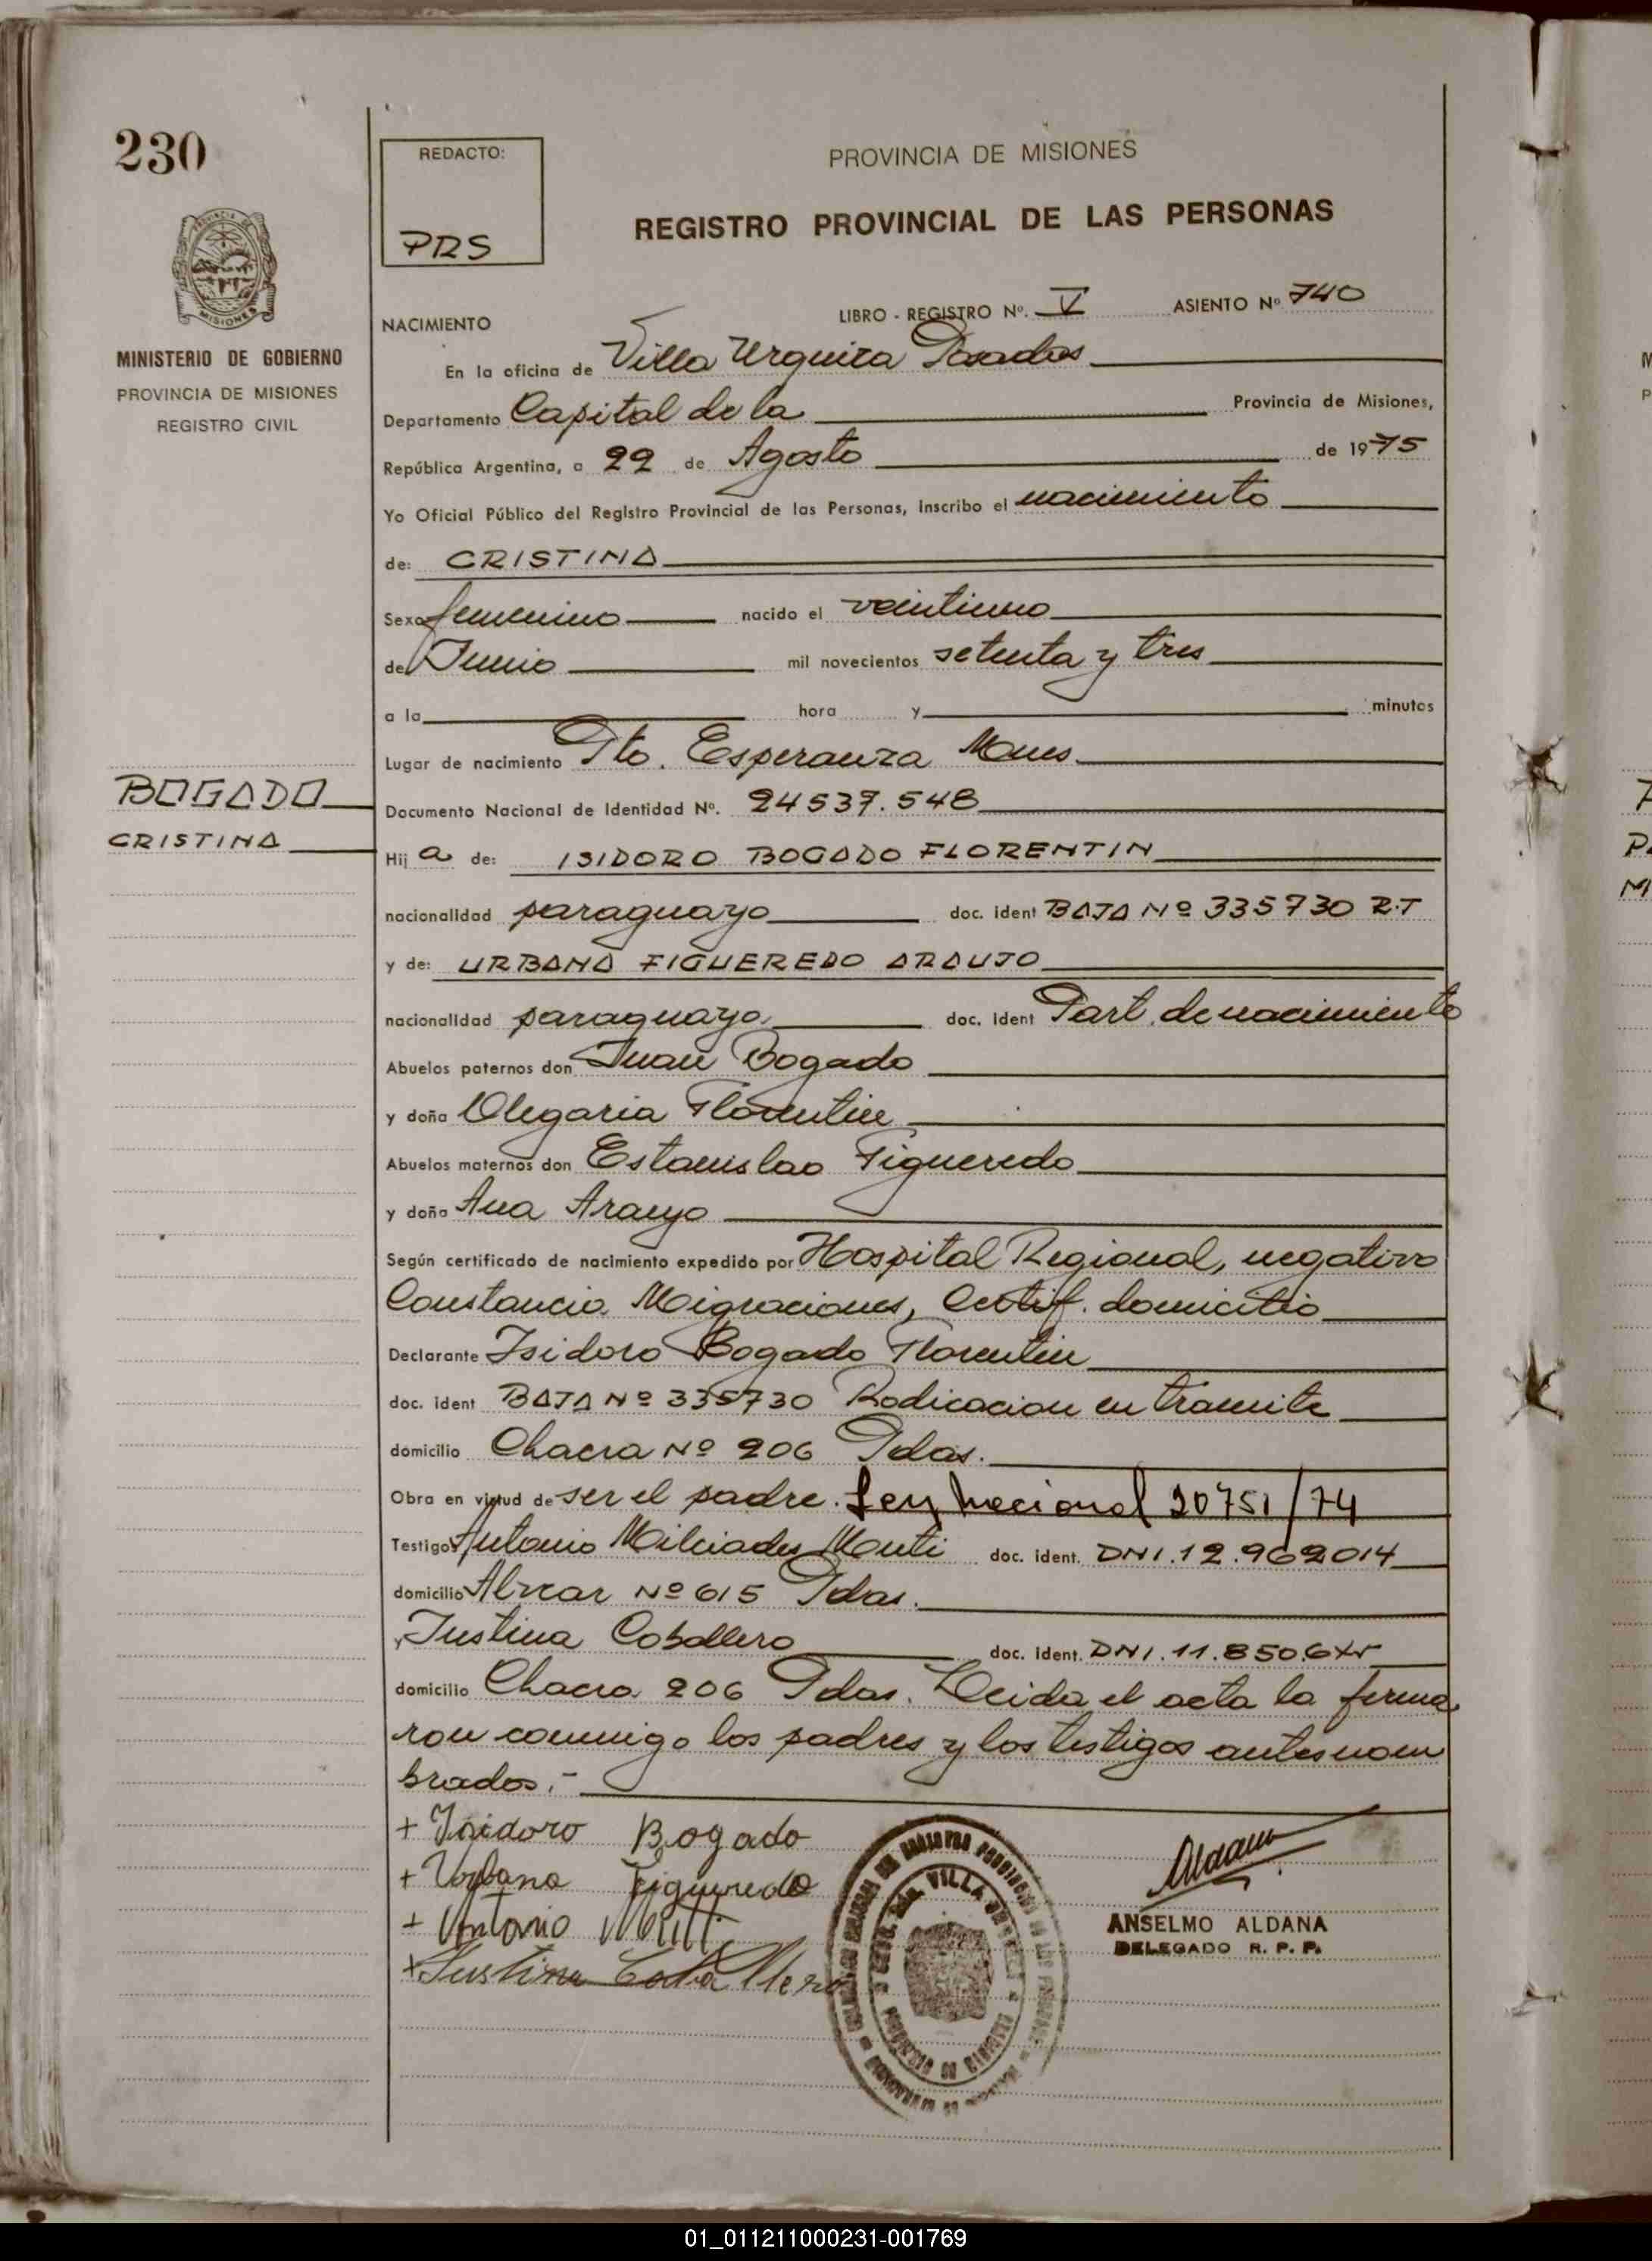 230
MINISTERIO DE GOBIERNO
PROVINCIA DE MISIONES
REGISTRO CIVIL
REDACTO:
PRS
PROVINCIA DE MISIONES
REGISTRO PROVINCIAL DE LAS PERSONAS
LIBRO - REGISTRO Nº. V ASIENTO Nº 740
NACIMIENTO
En la oficina de Villa Urquiza Posadas
Departamento Capital de la Provincia de Misiones,
República Argentina, a 22 de Agosto de 1975
Yo Oficial Público del Registro Provincial de las Personas, inscribo el nacimiento
de: CRISTINA
Sexo femenino nacido el veintiuno
de Junio mil novecientos setenta y tres
a la hora y minutos
Lugar de nacimiento Pto. Esperanza Mnes.
BOGADO
CRISTINA
Documento Nacional de Identidad Nº. 24537.548
Hij a de: ISIDORO BOGADO FLORENTIN
nacionalidad paraguayo doc. ident BAJA Nº 335730 R.T
y de: URBANA FIGUEREDO ARAUJO
nacionalidad paraguaya doc. ident Part. de nacimiento
Abuelos paternos don Juan Bogado
y doña Olegaria Florentin
Abuelos maternos don Estanislao Figueredo
y doña Ana Araujo
Según certificado de nacimiento expedido por Hospital Regional, negativo
Constancia Migraciones, Certif. domicilio
Declarante Isidoro Bogado Florentin
doc. ident BAJA Nº 335730 Radicacion en tramite
domicilio Chacra Nº 206 Pdas.
Obra en virtud de ser el padre. Ley Nacional 20751/74
Testigos Antonio Milciades Monti doc. ident. DNI.12.962014
domicilio Alvear Nº 615 Pdas.
y Justina Caballero doc. ident. DNI.11.850.6
domicilio Chacra 206 Pdas. Leida el acta la firma
ron conmigo los padres y los testigos antes nom
brados.-
+ Isidoro Bogado
+ Urbana Figueredo
+ Antonio Monti
+ Justina Caballero
VILLA URQUIZA
PROVINCIA DE MISIONES
Aldana
ANSELMO ALDANA
DELEGADO R. P. P.
01_011211000231-001769